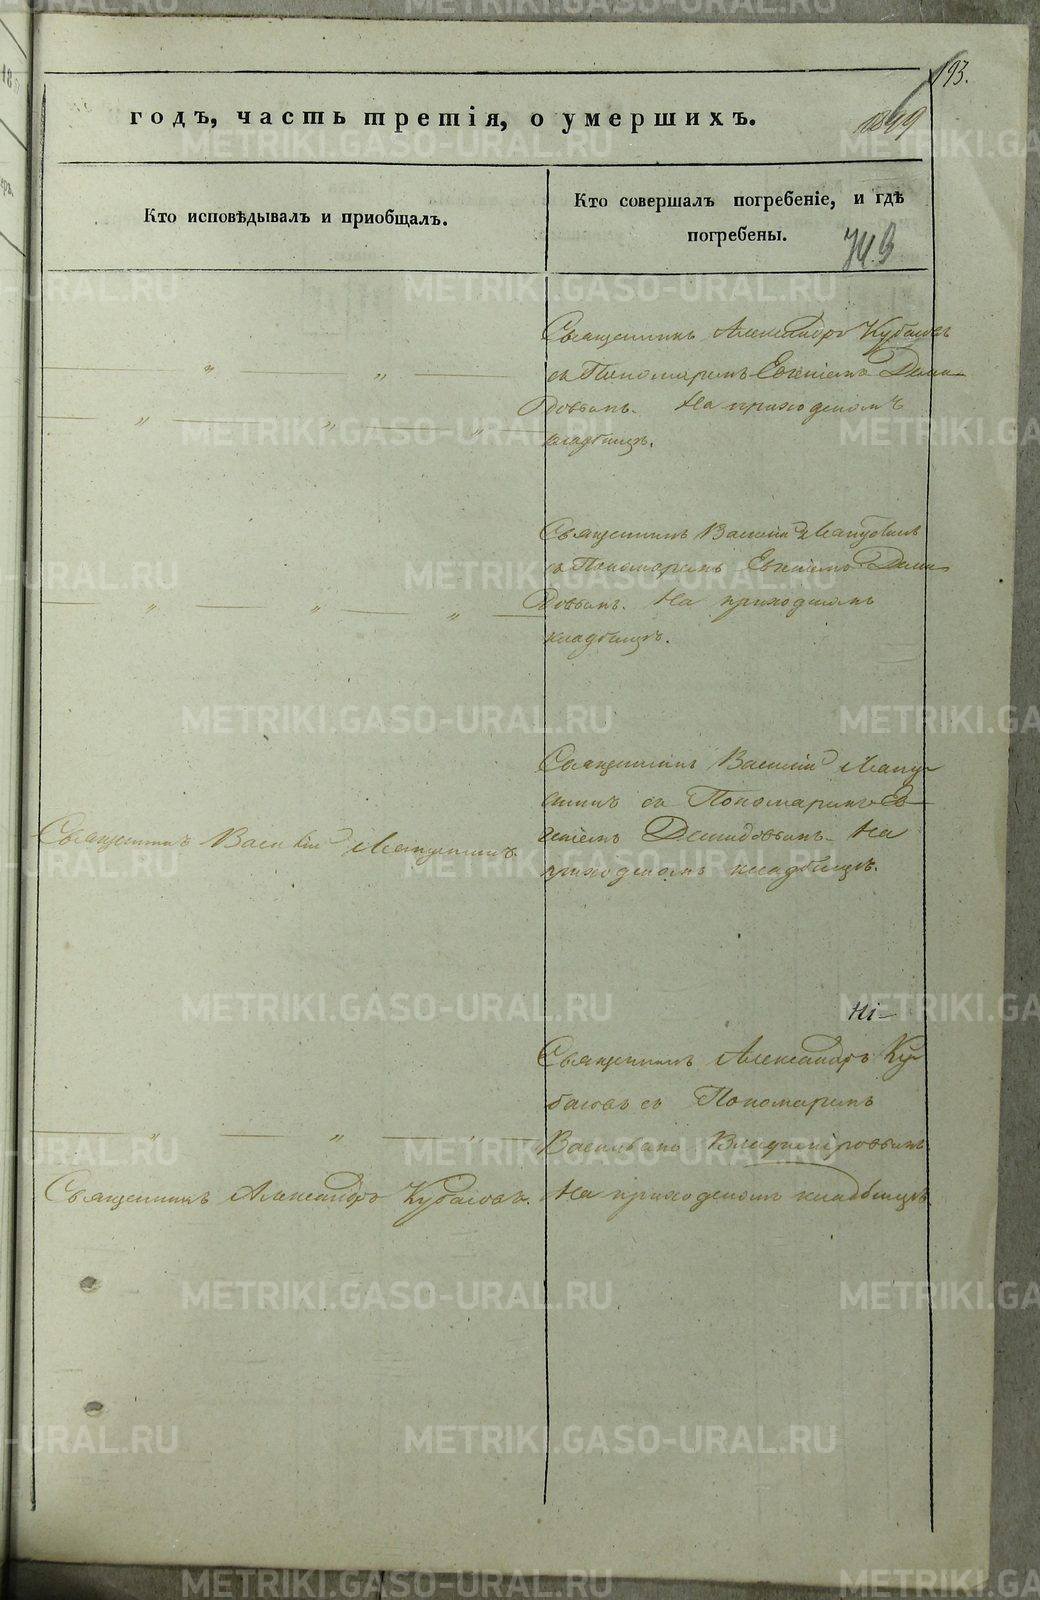 193.
годъ, часть третія, о умершихъ.
1899
Кто исповѣдывалъ и пріобщалъ.
Кто совершалъ погребеніе, и гдѣ
погребены.
749
Священникъ Александръ Кубасовъ
съ Пономаремъ Евгеніемъ Деми-
довымъ. На приходскомъ
кладбищѣ.
Священникъ Василій
съ Пономаремъ Евгеніемъ Деми
довымъ. На приходскомъ
кладбищѣ.
Священникъ Василій
съ Пономаремъ Ев-
геніемъ Демидовымъ. На
приходскомъ кладбищѣ.
Священникъ Василій
Священникъ Александръ Ку-
басовъ съ Пономаремъ
Васильемъ Владиміровымъ
На приходскомъ кладбищѣ.
Священникъ Александръ Кубасовъ.
METRIKI.GASO-URAL.RU